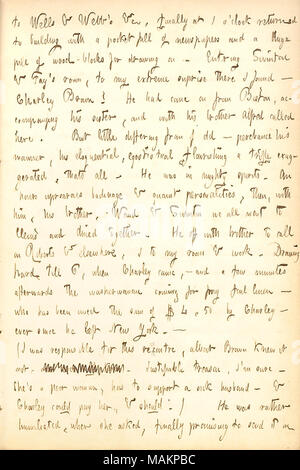 to Wells & Webb's &c, finally at 1 o'clock returned
to building with a pocket full of newspapers and a huge
pile of wood-blocks for drawing on. Entering Swinton
& Fay's room to my extreme surprise there I found —
Charley Brown! He had come on from Boston, ac-
companying his sister, and with his brother Alfred called
here. But little differing from of old — perchance his
manner, his elegantial, gestural flourishing a trifle exag-
gerated, that's all. He was in mighty spirits. An
hours uproarous badinage & quaint personalities, then, with
him, his brother, & Swinton we all went to
and dined together. He off with brother to call
on Roberts & elsewhere, I to my room & work. Drawing
hard till 6, when Charley came, — and a few minutes
afterwards the washerwoman coming for my foul linen —
who has been owed the sum of $ 4, 50 by Charley —
ever since he left New York. —
(I was responsible for this rencontre, albeit Brown knew it
not. Justifiable treason, I'm sure —
She's a poor woman, has to support a sick husband — &
Charley could pay her, & should!) He was rather
humiliated, when she asked, finally promising to send it on
alamy
Image ID: MAKPBC
www.alamy.com